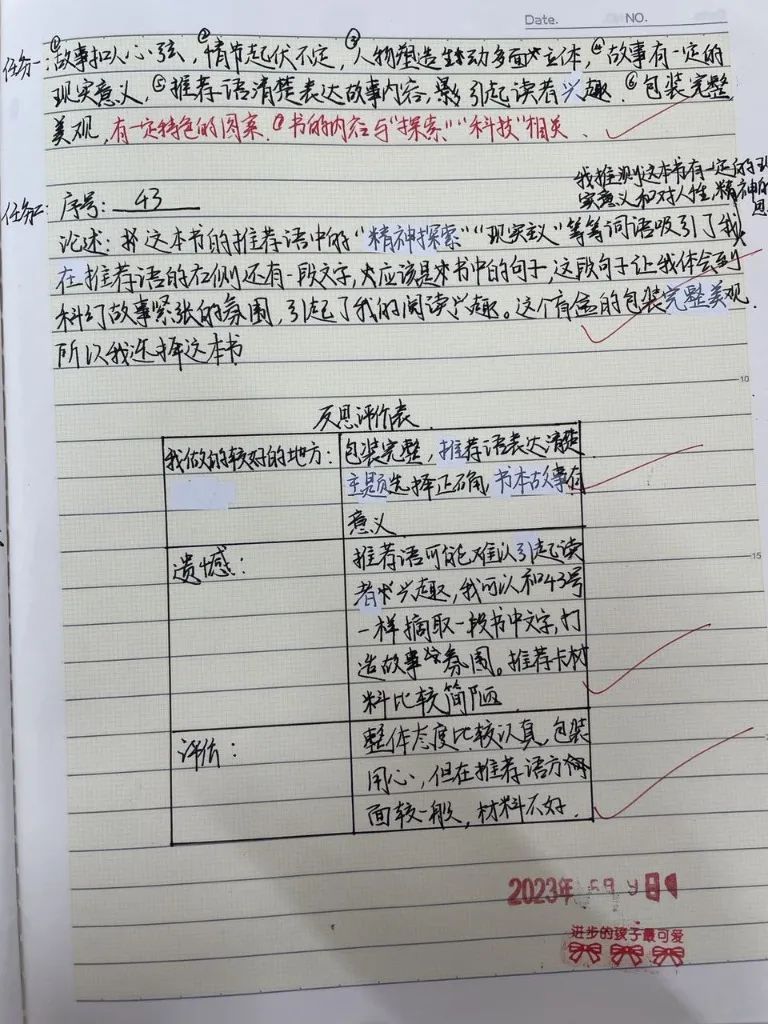 Date. NO.
任务一: ①故事扣人心弦, ②情节起伏不定, ③人物塑造生动多面立体, ④故事有一定的
现实意义, ⑤推荐语清楚表达故事内容, 引起读者兴趣. ⑥包装完整,
美观, 有一定特色的图案. ⑦书的内容与“探索”“科技”相关.
我推测这本书有一定的现
实意义和对人性,精神的
思
任务二: 序号: 43
论述: 这本书的推荐语中的“精神探索”“现实主义”等等词语吸引了我
在推荐语的右侧还有一段文字, 应该是本书中的句子, 这段句子让我体会到
科幻故事紧张的氛围, 引起了我的阅读兴趣。这个盲盒的包装完整美观.
所以我选择这本书
10
反思评价表.
我做的较好的地方: 包装完整, 推荐语表达清楚
主题选择正确, 书本故事有
意义
15
遗憾: 推荐语可能难以引起读
者兴趣, 我可以和43号
一样摘取一段书中文字, 打
造故事氛围。推荐卡材
料比较简陋
评估: 整体态度比较认真, 包装
用心, 但在推荐语方
面较一般, 材料不好.
2023年
进步的孩子最可爱